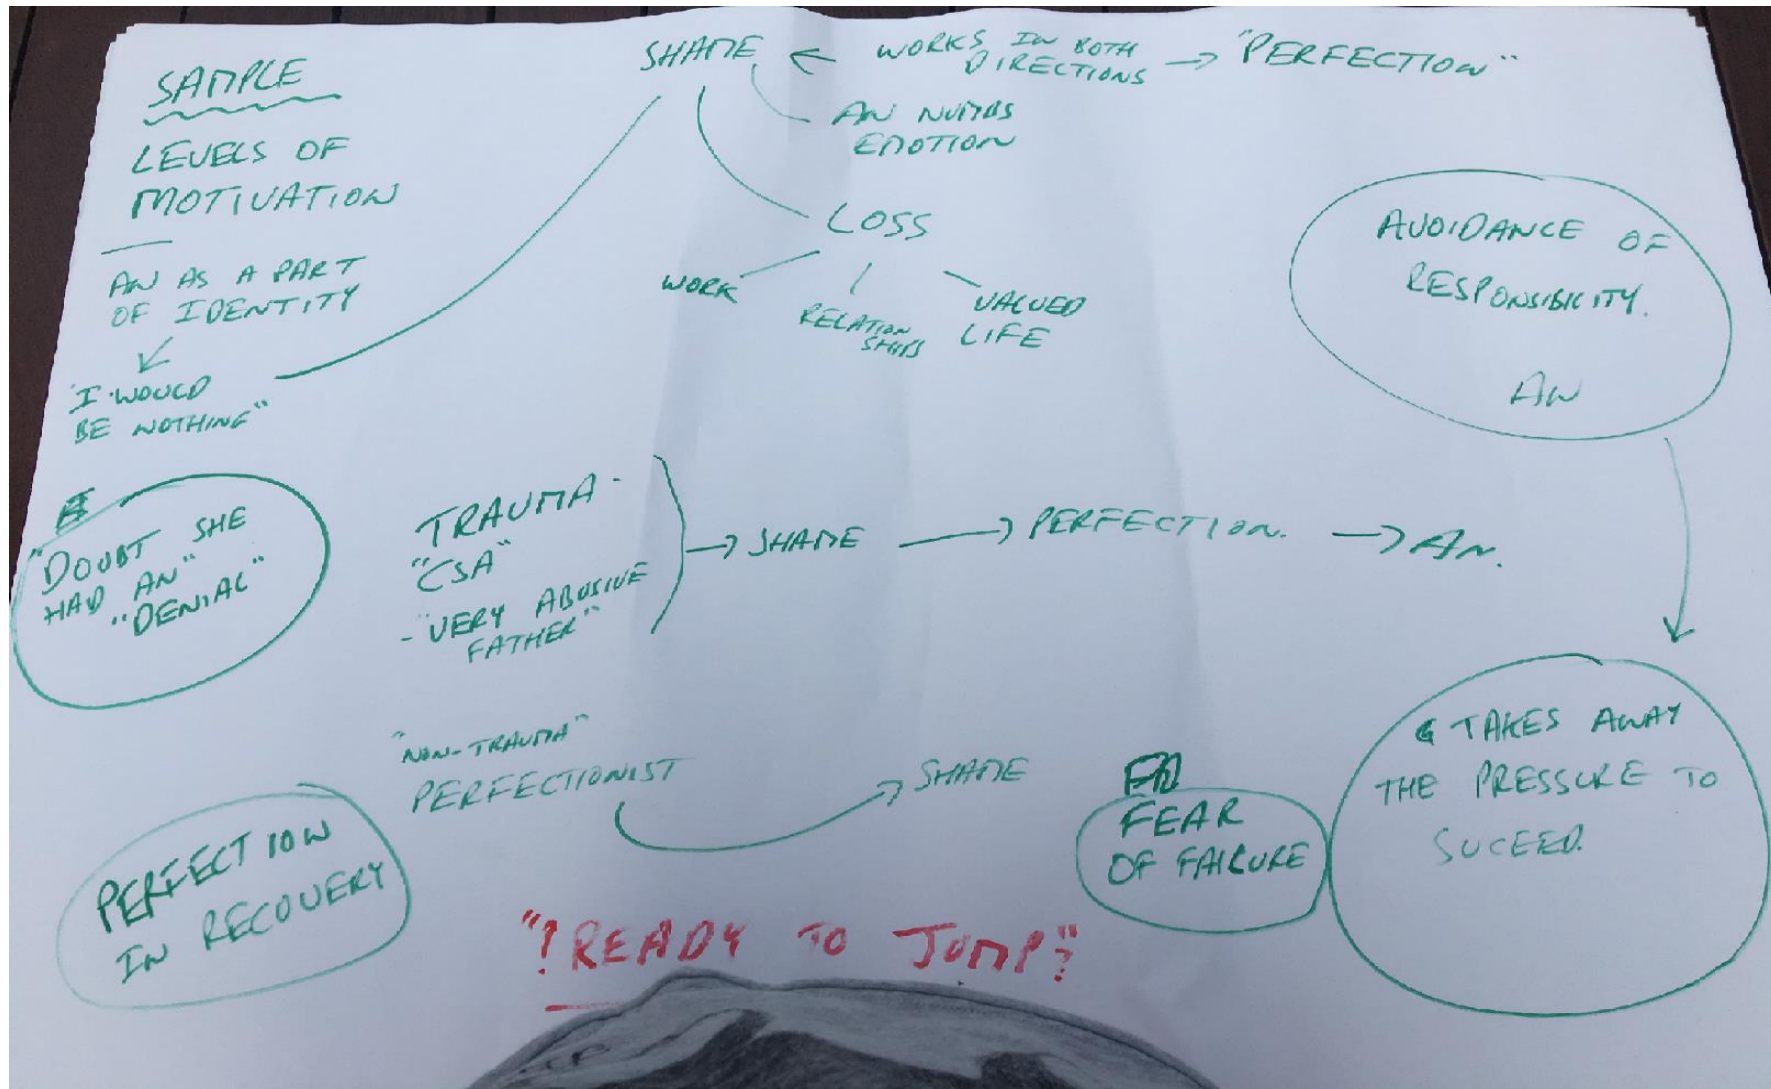 SAMPLE
LEVELS OF
MOTIVATION
AN AS A PART
OF IDENTITY
"I WOULD
BE NOTHING"
SHAME
WORKS IN BOTH
DIRECTIONS
"PERFECTION"
AN NUMBS
EMOTION
LOSS
WORK
RELATION
SHIPS
VALUED
LIFE
AVOIDANCE OF
RESPONSIBILITY.
AN
"DOUBT SHE
HAD AN"
"DENIAL"
TRAUMA -
"CSA"
- "VERY ABUSIVE
FATHER"
SHAME
PERFECTION.
AN.
"NON-TRAUMA"
PERFECTIONIST
SHAME
FEAR
OF FAILURE
TAKES AWAY
THE PRESSURE TO
SUCEED.
PERFECTION
IN RECOVERY
"? READY TO JUMP"?